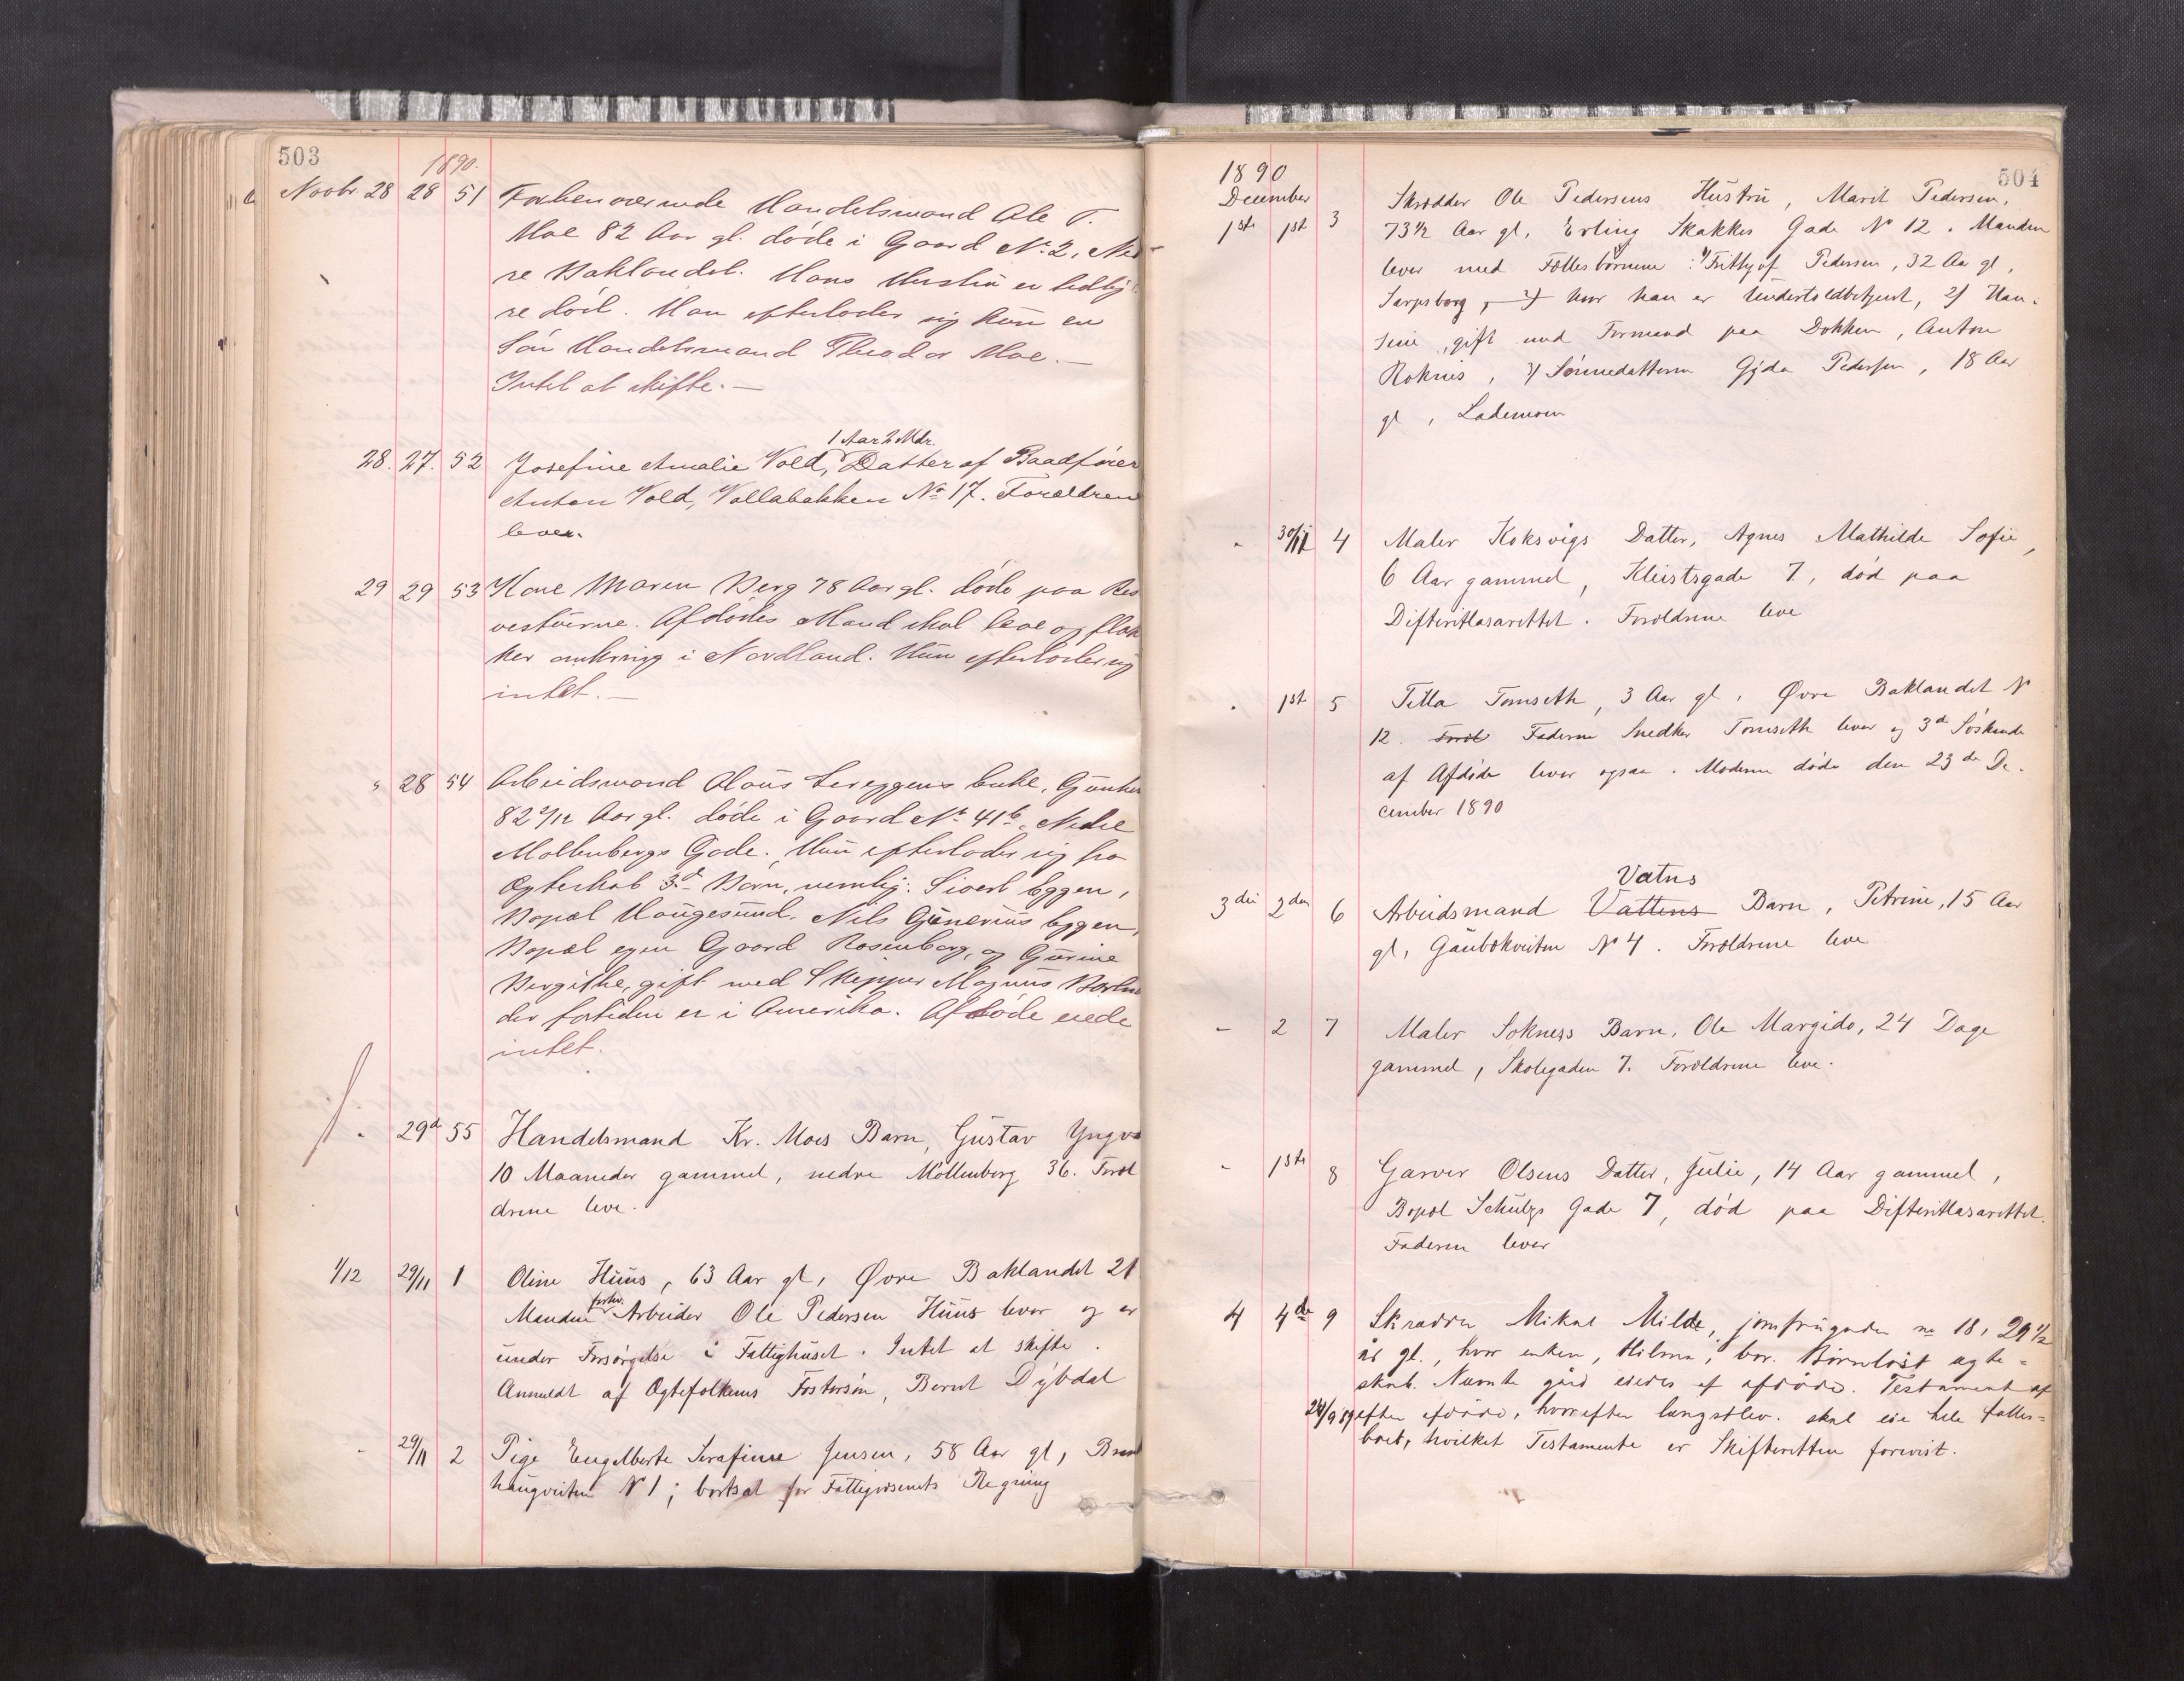 503
1890.
Novbr 28 28 51 Forhenværende Handelsmand Ole T.
Moe 82 Aar gl. døde i Gaard No 2, Ned
re Baklandet. Hans Hustru er tidlig
re død. Han efterlader sig kun en
Søn Handelsmand Theodor Moe. —
Intet at skifte. —
1 Aar 2 Mdr.
28. 27. 52 Josefine Amalie Vold, Datter af Baadfører
Anton Vold, Vollabakken No 17. Forældrene
lever.
29 29 53 Kone Maren Berg 78 Aar gl. døde paa Rei
vestuerne. Afdødes Mand skal leve og flak
ker omkring i Nordland. Hun efterlader sig
intet. —
" 28 54 Arbeidsmand Olaus Enke,
82 Aar gl. døde i Gaard No 41b, Nedre
Møllenbergs Gade. Hun efterlader sig fra
Ægteskab 3de Børn, nemlig: Sivert Eggen,
Bopæl Haugesund, Nils Gunerius Eggen,
Bopæl egen Gaard Rosenborg, og Gurine
Bergithe, gift med Skipper Magnus
der fortiden er i Amerika. Afdøde eiede
intet.
" 29de 55 Handelsmand Kr. Moes Barn, Gustav Yngva
10 Maaneder gammel, nedre Møllenberg 36. Foræl
drene leve.
1/12 29/11 1 Oline Huus, 63 Aar gl, Øvre Baklandet 21
forhv.
Manden Arbeider Ole Pedersen Huus lever og er
under Forsørgelse i Fattighuset. Intet at skifte.
Anmeldt af Ægtefolkenes Fostersøn, Bernt Dybdal
- 29/11 2 Pige Engelberte Serafine Jensen, 58 Aar gl, Bran
haugveiten N 1; bortsat for Fattigvæsenets Regning
504
1890
December
1ste 1ste 3 Skrædder Ole Pedersens Hustru, Marit Pedersen,
73 1/2 Aar gl, Erling Skakkes Gade No 12. Manden
lever med Fællesbørnene: 1) Frithjof Pedersen, 32 Aar gl,
Sarpsborg, hvor han er Undertoldbetjent, 2) Han-
sine, gift med Formand paa Dokken, Anton
Roknes, 3) Sønnedatteren Gyda Pedersen, 18 Aar
gl, Lademoen
- 30/11 4 Maler Koksvigs Datter, Agnes Mathilde Sofie,
6 Aar gammel, Kleistsgade 7, død paa
Difteritlasarettet. Forældrene leve
- 1ste 5 Tilla Tomseth, 3 Aar gl, Øvre Baklandet N
12. Foræl Faderen Snedker Tomseth lever og 3de Søskende
af Afdøde lever ogsaa. Moderen døde den 23de De-
cember 1890
Vatns
3die 2den 6 Arbeidsmand Vattens Barn, Petrine, 15 Aar
gl, Gaubækveiten No 4. Forældrene leve
- 2 7 Maler Sokness Barn, Ole Margido, 24 Dage
gammel, Skolegaden 7. Forældrene leve.
- 1ste 8 Garver Olsens Datter, Julie, 14 Aar gammel,
Bopæl Schulzs Gade 7, død paa Difteritlasarettet.
Faderen lever
4 4de 9 Skrædder Mikal Milde, jomfrugaden no 18, 29 1/2
år gl., hvor enken, Hilma, bor. Barnløst ægte-
skab. Nævnte gård eiedes af afdøde. Testament af
24/9 89 efter afdøde, hvorefter længstlev. skal eie hele fælles-
boet, hvilket Testamente er Skifteretten forevist.